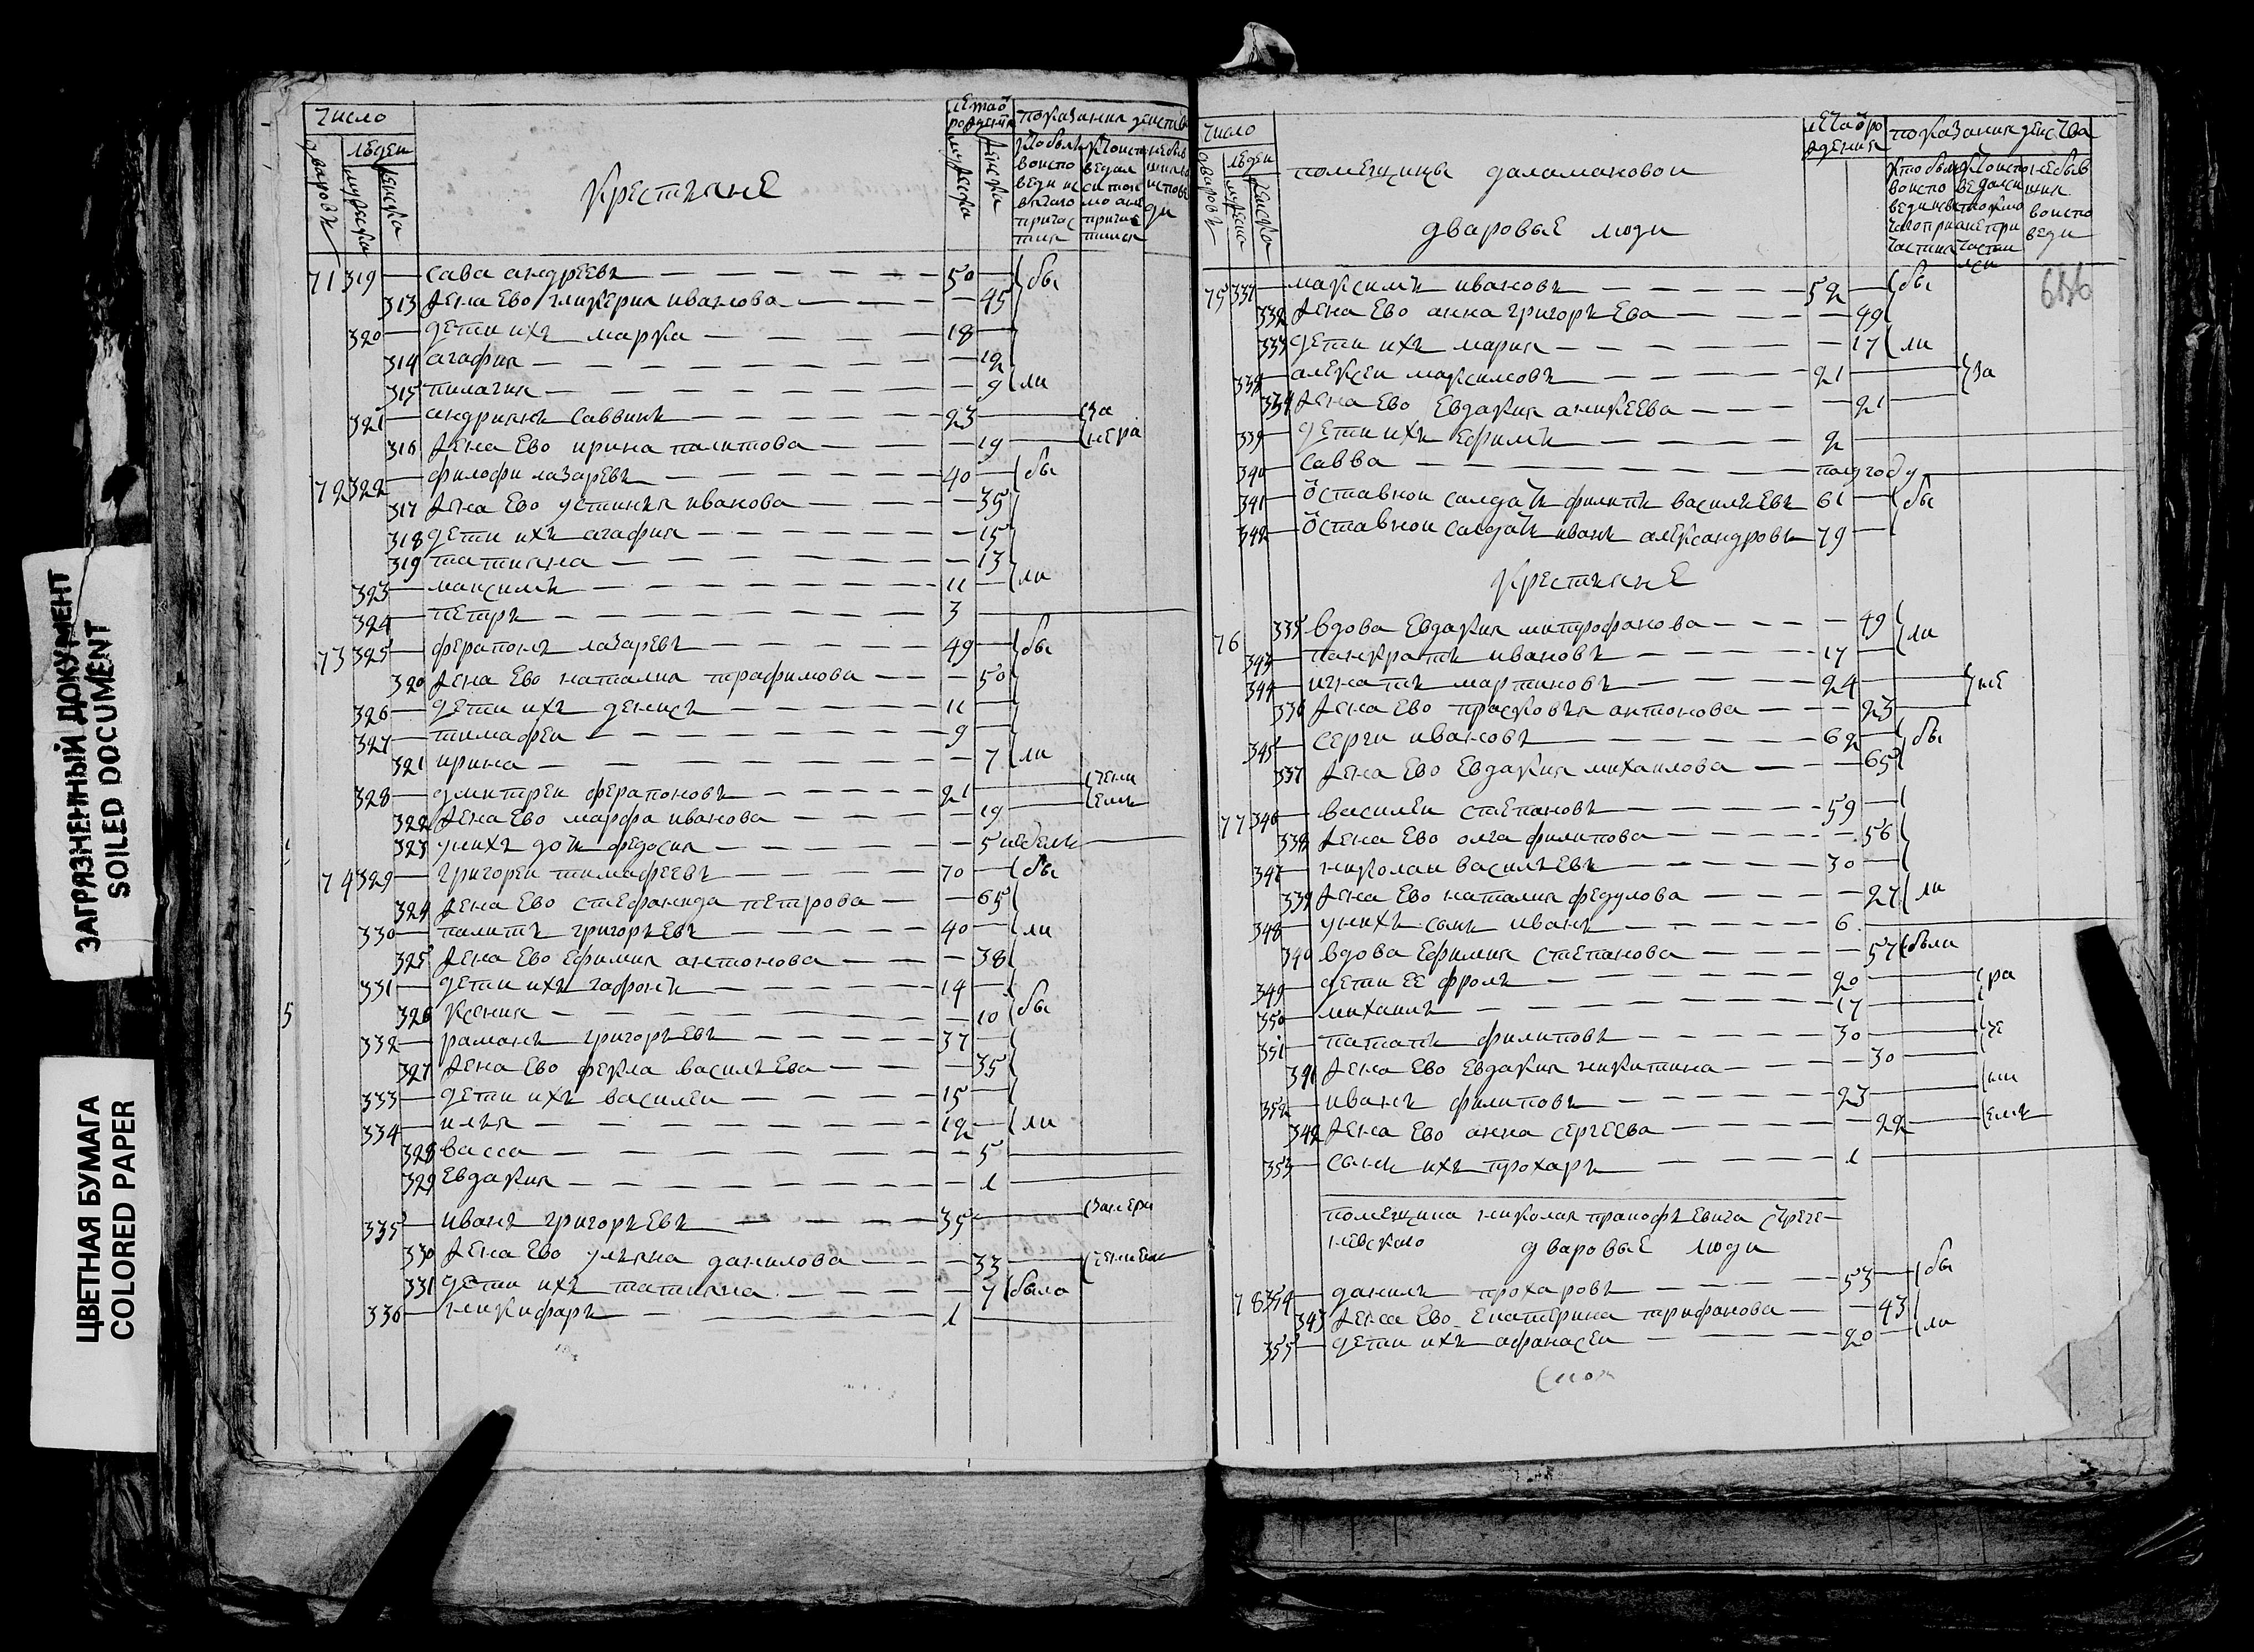 ЗАГРЯЗНЕННЫЙ ДОКУМЕНТ
SOILED DOCUMENT
ЦВЕТНАЯ БУМАГА
COLORED PAPER
число
показания действа
дваровъ
людеи
мужеска
женска
крестьяне
71 319 — сава андреевъ — 50 — бы
313 жена ево гликерия иванова — 45
320 — дети ихъ марка — 18
314 агафия — 12
315 пилагия — 9 ли
321 — андриянъ саввинъ — 23 — за
316 жена ево ирина палитова — 19 — нера
72 322 — филофи лазаревъ — 40 — бы
317 жена ево устинья иванова — 35
318 дети ихъ агафия — 15
319 татияна — 13
323 — максимъ — 11 — ли
324 — петаръ — 3
73 325 — ферапонъ лазаревъ — 49 — бы
320 жена ево наталия тарафимова — 50
326 — дети ихъ денисъ — 11
327 — тимафеи — 9
321 ирина — 7 ли
328 — дмитреи ферапоновъ — 21 — чени
322 жена ево марфа иванова — 19 — емъ
323 унихъ дочь федосия — 5 недель
74 329 — григореи тимафеевъ — 70 — бы
324 жена ево стефанида петрова — 65
330 — палитъ григорьевъ — 40 — ли
325 жена ево ефимия антонова — 38
331 — дети ихъ гафонъ — 14
326 ксения — 10 бы
332 — раманъ григорьевъ — 37
327 жена ево фекла васильева — 35
333 — дети ихъ василеи — 15
334 — илья — 12 — ли
328 васса — 5
329 евдакия — 1
335 — иванъ григорьевъ — 35 — занера
330 жена ево ульяна данилова — 33 — чениемъ
331 дети ихъ татияна — 7 была
336 — никифаръ — 1
5
число
показания действа
дваровъ
людеи
мужеска
женска
помещицы даламановои
дваровые люди
686
75 337 — максимъ ивановъ — 52 — бы
332 жена ево анна григорьева — 49
333 дети ихъ мария — 17 ли
338 — алексеи максимовъ — 21 — за
334 жена ево евдакия аникеева — 21
339 — дети ихъ ефимъ — 2
340 — савва — полугоду
341 — отставнои салдатъ филипъ васильевъ 61 — бы
342 — отставнои салдатъ иванъ александровъ 79
крестьяне
76 335 вдова евдакия митрофанова — 49
343 — панкратъ ивановъ — 17 — ли
344 — игнатъ мартиновъ — 24 — не
336 жена ево прасковья антонова — 23
345 — серги ивановъ — 62 — бы
337 жена ево евдакия михаилова — 65
77 346 — василеи степановъ — 59
338 жена ево олга филипова — 56
347 — николаи васильевъ — 30
339 жена ево наталия федулова — 27 ли
348 — унихъ сынъ иванъ — 6
340 вдова ефимия степанова — 57 были
349 — дети ее фролъ — 20 — ра
350 — михаилъ — 17
351 — патапъ филиповъ — 30 — че
341 жена ево евдакия никитина — 30
352 — иванъ филиповъ — 23 — ни
342 жена ево анна сергеева — 22 — емъ
353 — сынъ ихъ прохаръ — 1
помещика николая пракофьевича
дваровые люди
78 354 — данилъ прохаровъ — 53 — бы
343 жена ево екатерина трифанова — 43
355 — дети ихъ афанасеи — 20 — ли